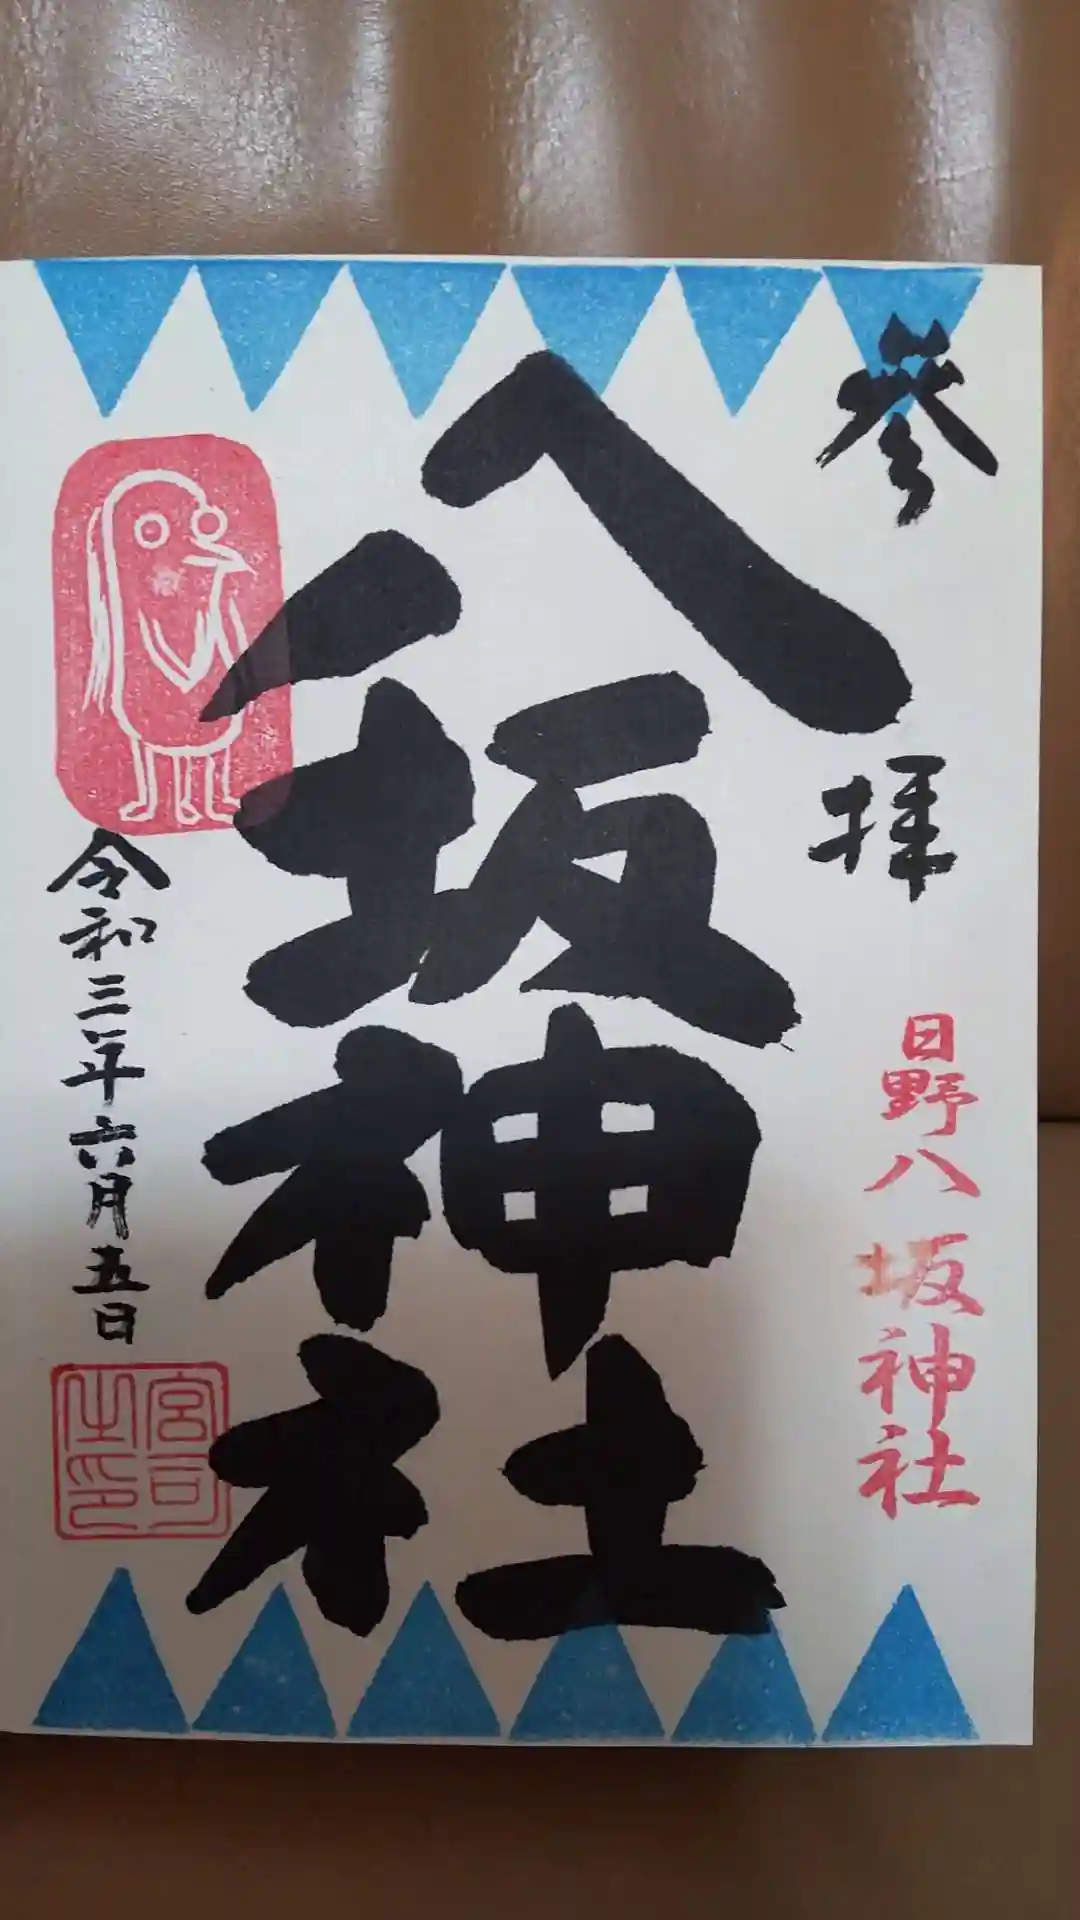 参拝
日野八坂神社
八坂神社
令和三年六月五日
宮司
之印